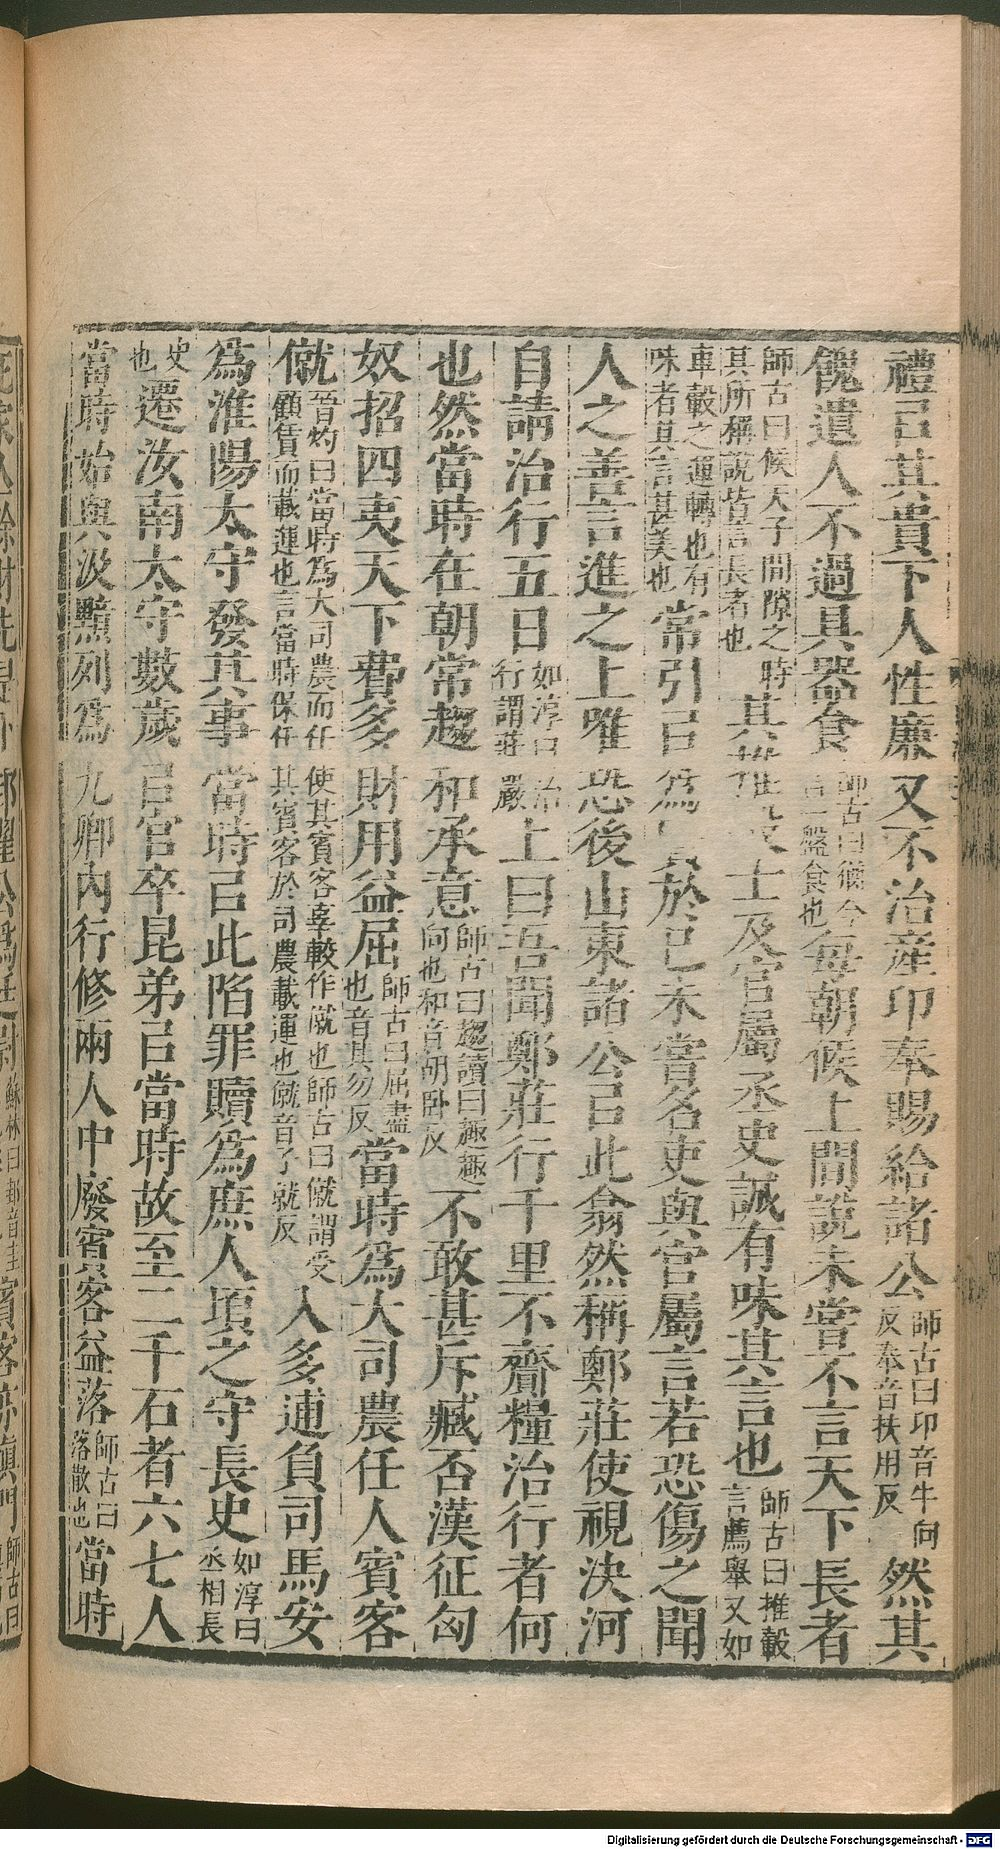 禮㠯其貴下人性廉又不治産卬奉賜給諸公師古曰卬音牛向反奉音扶用反然其
餽遺人不過具器食師古曰猶今言一盤食也每朝候上間說未嘗不言天下長者
師古曰候天子間隙之時其所稱說皆言長者也其推轂士及官屬丞史誠有味其言也師古曰推轂言薦舉又如
車轂之運轉也有味者其言甚美也常引㠯爲賢於己未嘗名吏與官屬言若恐傷之聞
人之善言進之上唯恐後山東諸公㠯此翕然稱鄭莊使視決河
自請治行五日如淳曰治行謂莊嚴上曰吾聞鄭莊行千里不齎糧治行者何
也然當時在朝常趨和承意師古曰趨讀曰趣趣向也和音胡卧反不敢甚斥臧否漢征匈
奴招四夷天下費多財用益屈師古曰屈盡也音其勿反當時爲大司農任人賓客
僦晉灼曰當時爲大司農而任使其賓客辜較作僦也師古曰僦謂受顧賃而載運也言當時保任其賓客於司農載運也僦音子就反入多逋負司馬安
爲淮陽太守發其事當時㠯此陷罪贖爲庶人頃之守長史如淳曰丞相長
史也遷汝南太守數歲㠯官卒昆弟㠯當時故至二千石者六七人
當時始與汲黯列爲九卿內行修兩人中廢賓客益落師古曰落散也當時
Digitalisierung gefördert durch die Deutsche Forschungsgemeinschaft - DFG